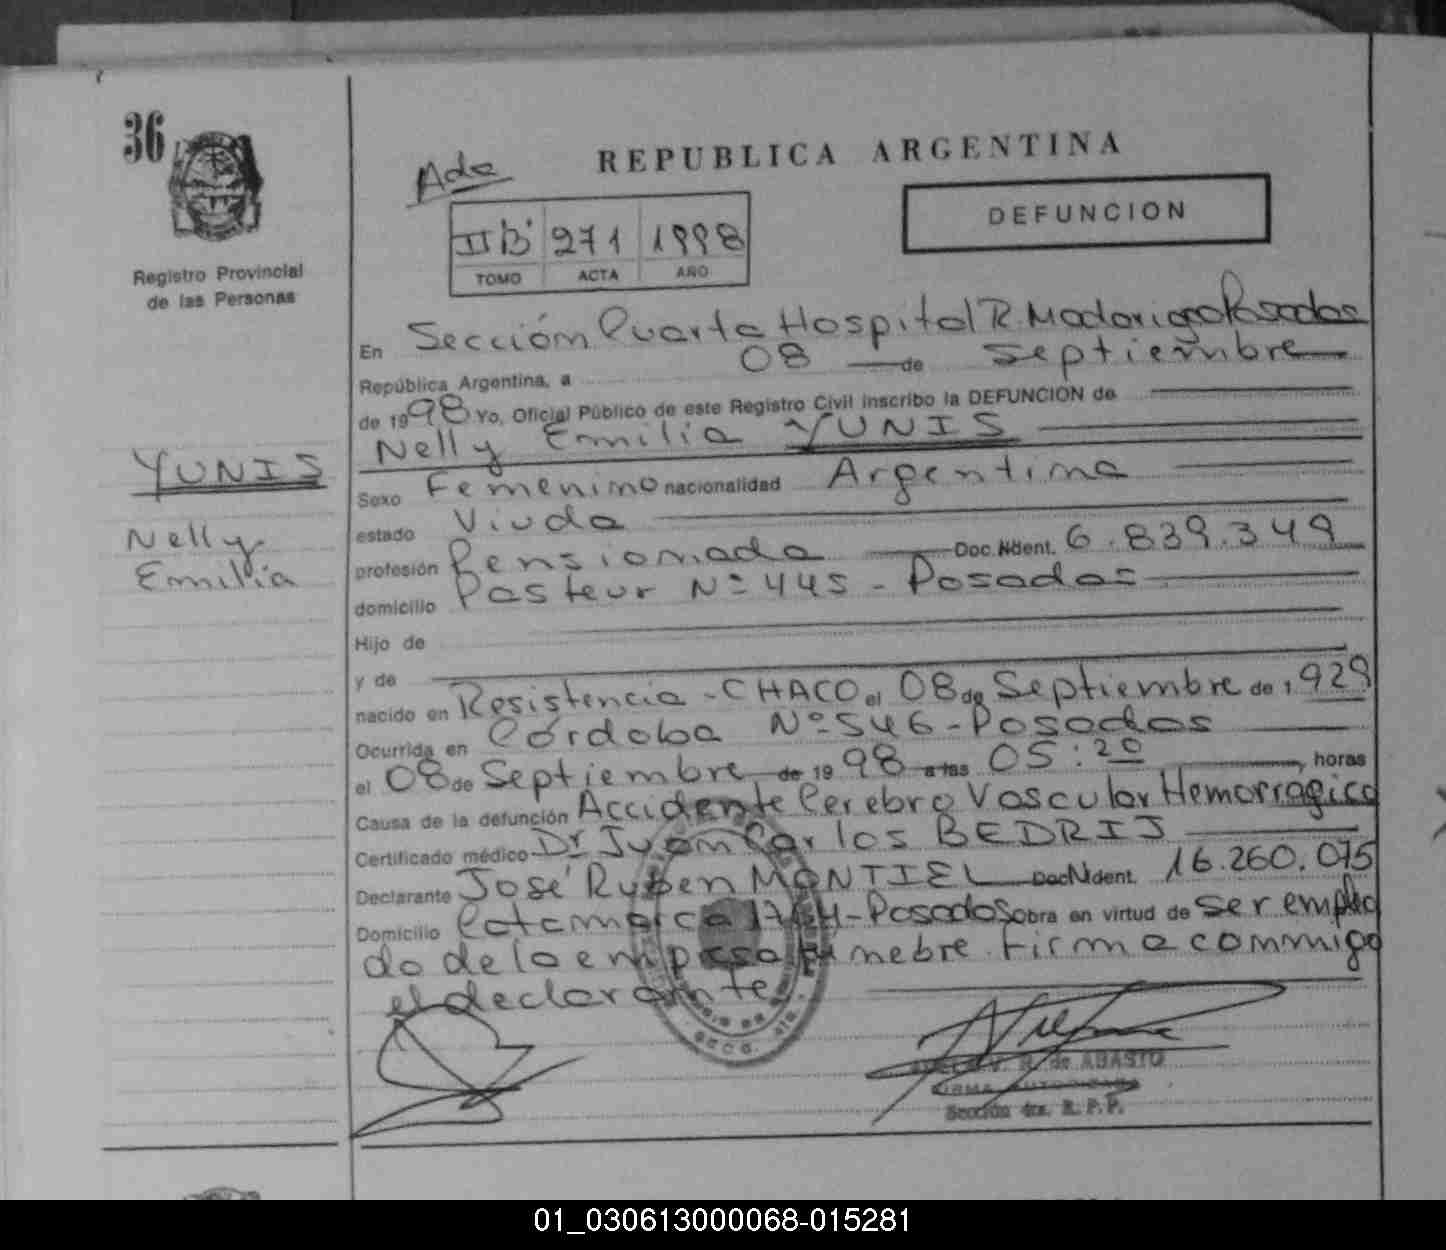 36
Registro Provincial
de las Personas
YUNIS
Nelly
Emilia
REPUBLICA ARGENTINA
DEFUNCION
II B 271 1998
TOMO ACTA AÑO
En Sección Cuarta Hospital R. Madariaga Posadas
República Argentina, a 08 de septiembre
de 1998 Yo, Oficial Público de este Registro Civil inscribo la DEFUNCION de
Nelly Emilia YUNIS
Sexo Femenino nacionalidad Argentina
estado Viuda
profesión Pensionada Doc. Ident. 6.839.349
domicilio Pasteur Nº 445 - Posadas
Hijo de
y de
nacido en Resistencia - CHACO el 08 de Septiembre de 1929
Ocurrida en Córdoba Nº 546 - Posadas
el 08 de Septiembre de 1998 a las 05:20 horas
Causa de la defunción Accidente Cerebro Vascular Hemorragico
Certificado médico Dr Juan Carlos BEDRIJ
Declarante José Ruben MONTIEL Doc. Ident. 16.260.075
Domicilio Catamarca - Posadas Obra en virtud de ser emplea
do de la empresa funebre. Firma conmigo
el declarante
R. de ABASTO
FIRMA AUTORIZADA
Sección 4ta. R. P. P.
01_030613000068-015281